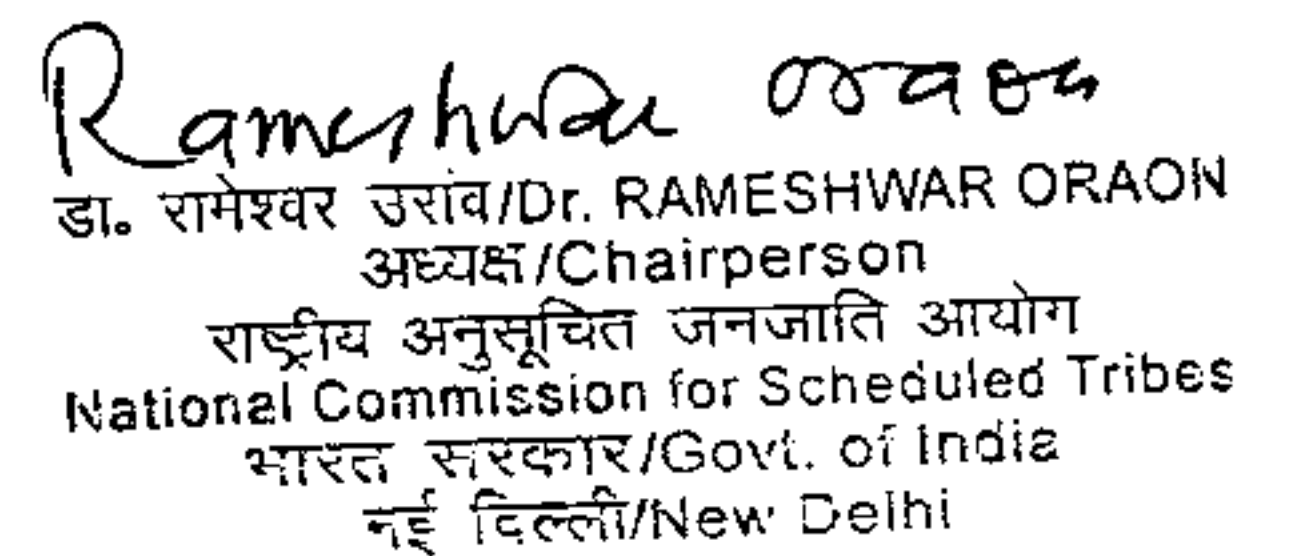 Rameshwar Oraon
डा. रामेश्वर उरांव/Dr. RAMESHWAR ORAON
अध्यक्ष/Chairperson
राष्ट्रीय अनुसूचित जनजाति आयोग
National Commission for Scheduled Tribes
भारत सरकार/Govt. of India
नई दिल्ली/New Delhi